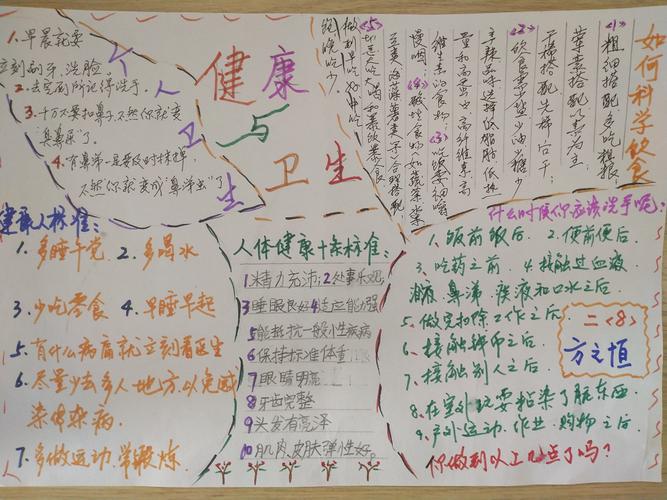 健康
与
卫生
个人
卫生
1.早晨就要
立刻刷牙,洗脸。
2.去完厕所记得洗手。
3.千万不要扣鼻子,不然你就变
"臭鼻屎"了。
4.有鼻涕一定要及时擤掉
不然你就变成"鼻涕虫"了
如何科学饮食
<1>粗细搭配多吃粗粮
荤素搭配以素为主,
干稀搭配先稀后干;
<2>饮食要少盐少油少糖少
辛辣品味选择低脂肪低热
量和高蛋白高纤维素高
维生素的食物;<3>吃饭要细嚼
慢咽;<4>酸性食物
<5>切忌大吃大喝和暴饮暴食
做到早吃好中吃
饱晚吃少
健康人标准:
1.多睡午觉 2.多喝水
3.少吃零食 4.早睡早起
5.有什么病痛就立刻看医生
6.尽量少去多人地方以免感
染传染病。
7.多做运动,常锻炼.
人体健康十条标准:
1精力充沛;2处事乐观;
3睡眠良好4适应能力强
5能抵抗一般小性疾病
6保持标准体重
7眼睛明亮
8牙齿完整
9头发有亮泽
10肌肉、皮肤弹性好。
什么时候你应该洗手呢:
1、饭前饭后. 2.便前便后.
3、吃药之前. 4.接触过血液
泪液、鼻涕、痰液和口水之后.
5、做完扫除工作之后
6、接触钱币之后.
7、接触别人之后.
8、在室外玩耍粘染了脏东西
9、户外运动、作业、购物之后.
你做到以上几点了吗?
二<8>
方之恒